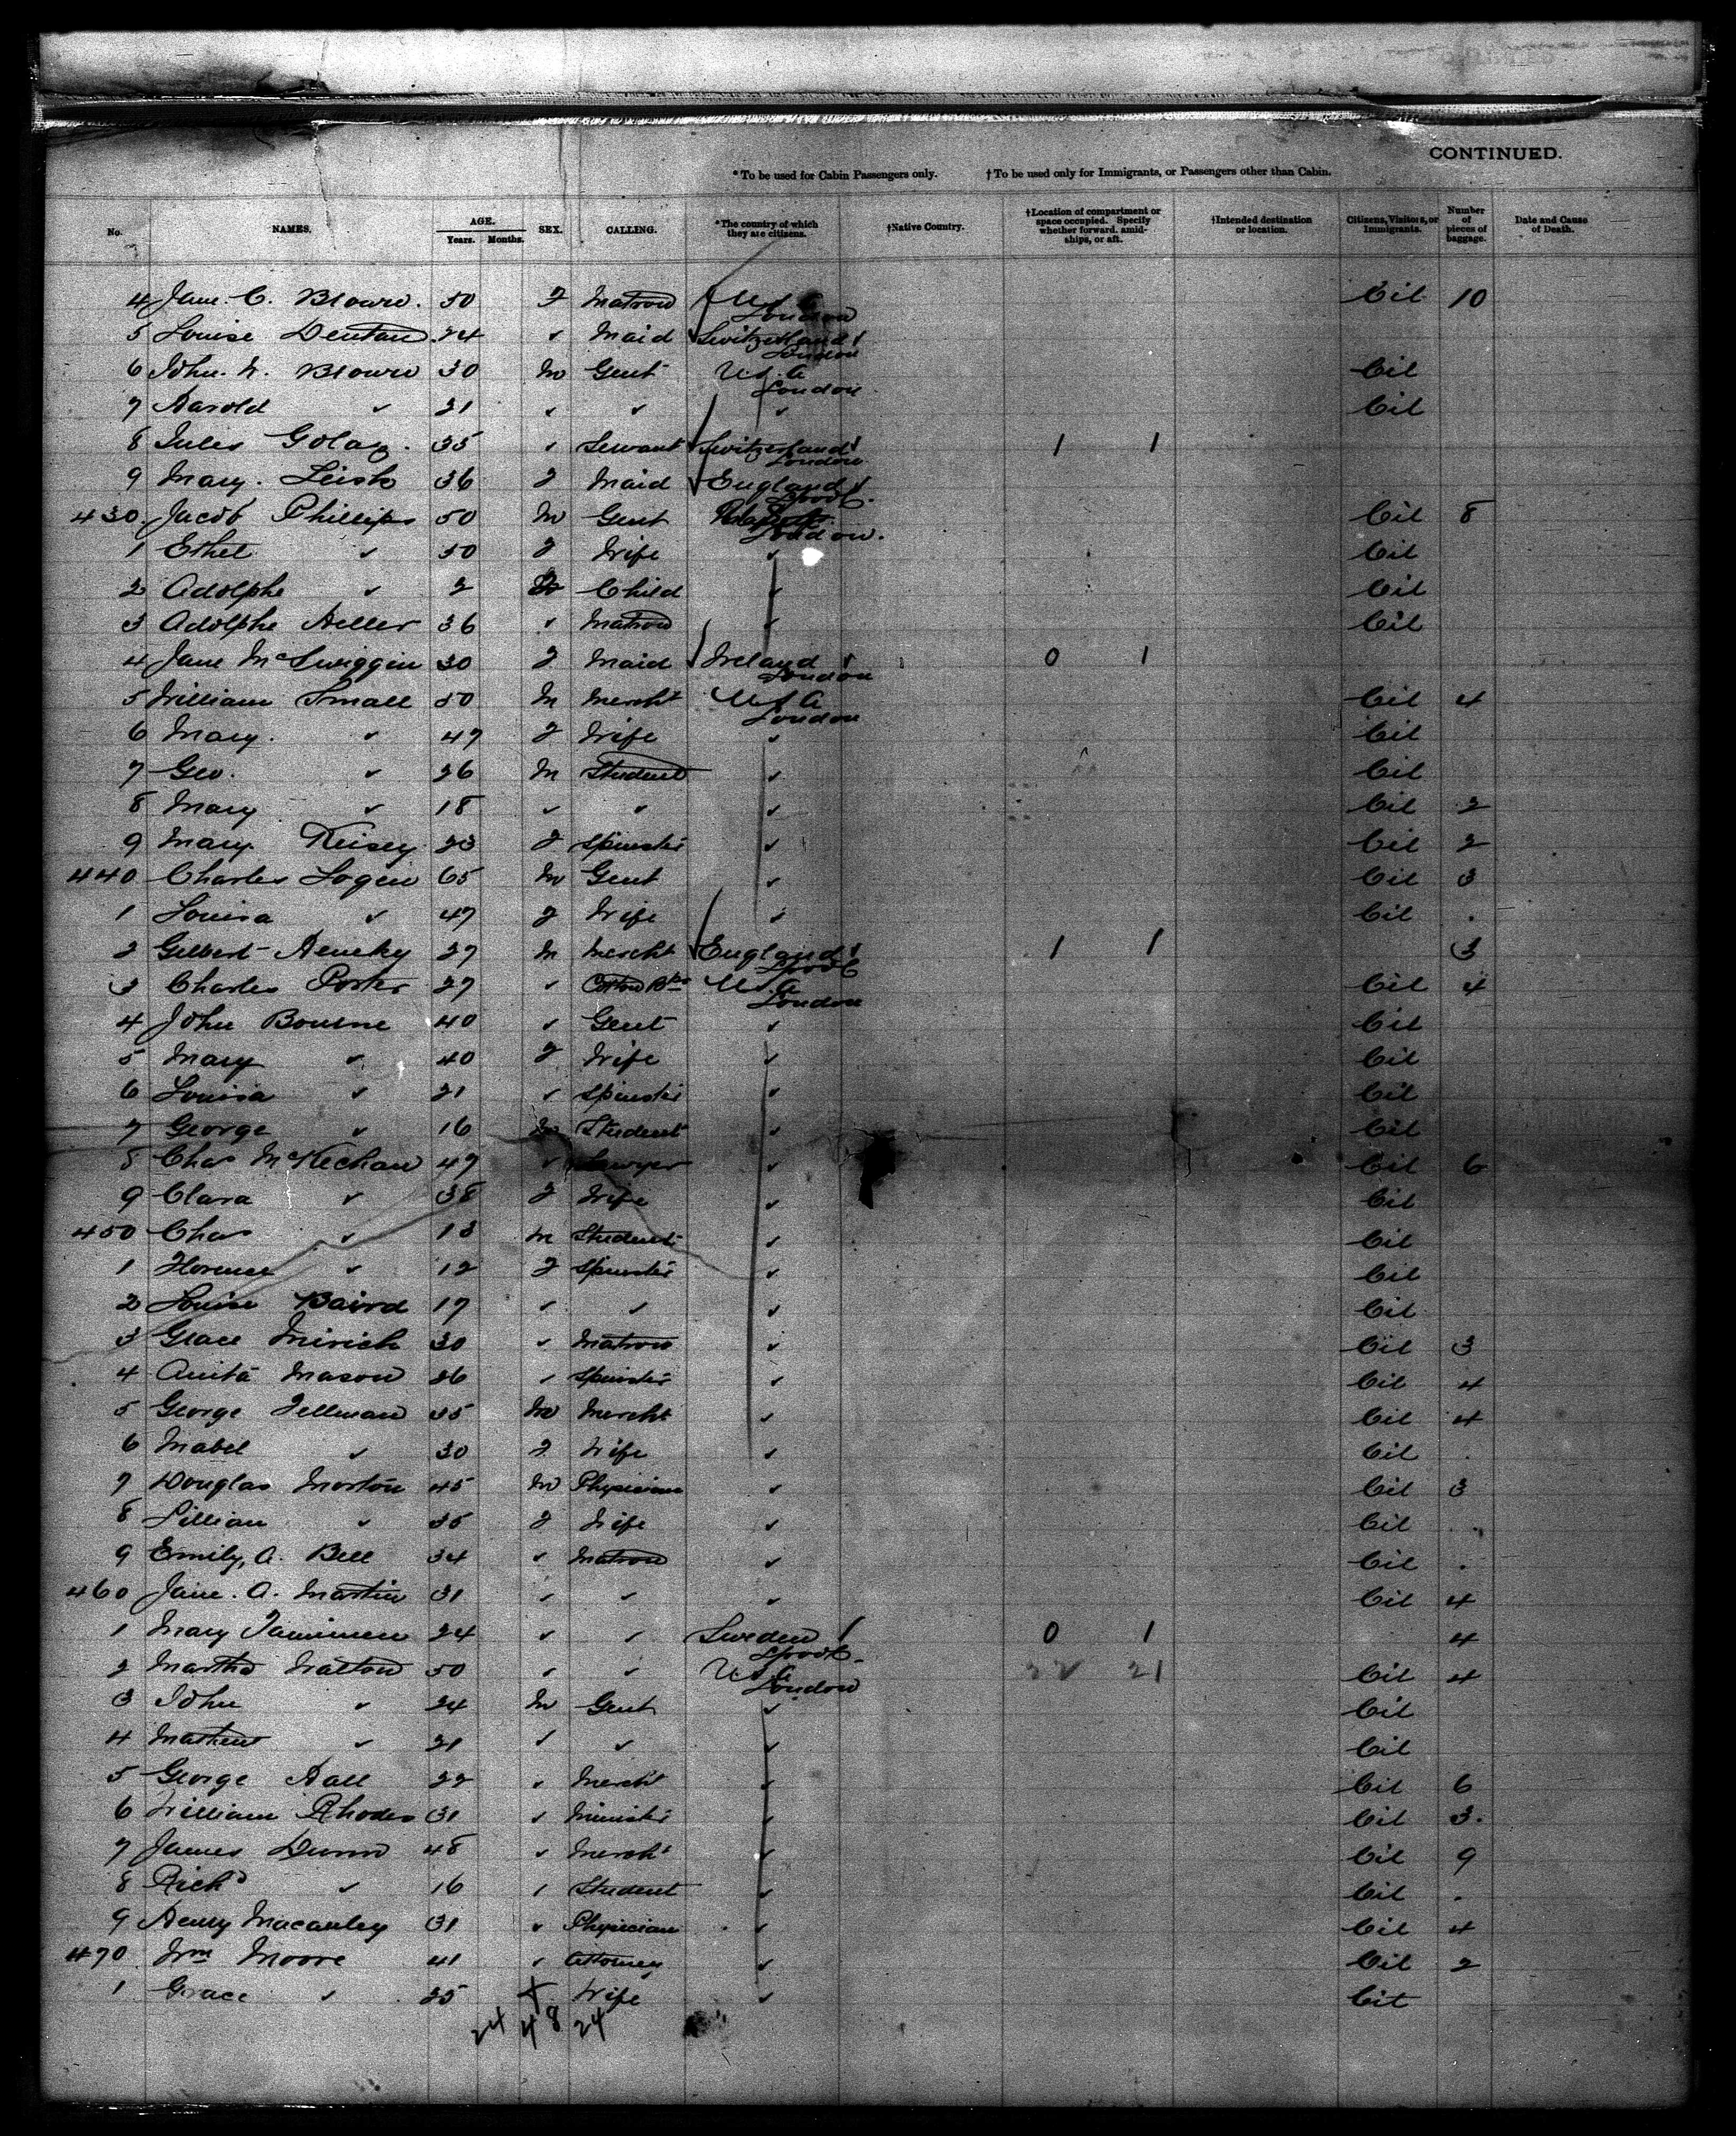 CONTINUED.
*To be used for Cabin Passengers only. †To be used only for Immigrants, or Passengers other than Cabin.
No. NAMES. AGE. Years. Months. SEX. CALLING. *The country of which they are citizens. †Native Country. †Location of compartment or space occupied. Specify whether forward, amidships, or aft. †Intended destination or location. Citizens, Visitors, or Immigrants. Number of pieces of baggage. Date and Cause of Death.
4 Jane C. 50 F Matron U.S.A London Cit 10
5 Louise Dentan 24 ✓ Maid Switzerland London
6 John N. 30 M Gent U.S.A London Cit
7 Harold ✓ 21 ✓ ✓ ✓ Cit
8 Jules Golay 35 ✓ Servant Switzerland London 1 1
9 Mary 36 F Maid England Lpool
430 Jacob Phillips 50 M Gent London Cit 8
1 Ethel ✓ 30 F Wife ✓ Cit
2 Adolphe ✓ 2 Child ✓ Cit
3 Adolphe Heller 36 ✓ Matron ✓ Cit
4 Jane McSwiggin 30 F Maid Ireland London 0 1
5 William Small 50 M Mercht U.S.A London Cit 4
6 Mary ✓ 47 F Wife ✓ Cit
7 Geo. ✓ 26 M Student ✓ Cit
8 Mary ✓ 18 ✓ ✓ ✓ Cit 2
9 Mary 23 F Spinster ✓ Cit 2
440 Charles Login 65 M Gent ✓ Cit 3
1 Louisa ✓ 47 F Wife ✓ Cit
2 Gilbert 27 M Mercht England Lpool 1 1 3
3 Charles Porter 27 ✓ Cotton Bkr U.S.A London Cit 4
4 John Bourne 40 ✓ Gent ✓ Cit
5 Mary ✓ 40 F Wife ✓ Cit
6 Louisa ✓ 21 ✓ Spinster ✓ Cit
7 George ✓ 16 M Student ✓ Cit
8 Chas McKechan 47 ✓ Lawyer ✓ Cit 6
9 Clara ✓ 38 F Wife ✓ Cit
450 Chas ✓ 13 M Student ✓ Cit
1 Florence ✓ 12 F Spinster ✓ Cit
2 Louise Baird 17 ✓ ✓ ✓ Cit
3 Grace Mirick 30 ✓ Matron ✓ Cit 3
4 Anita Mason 26 ✓ Spinster ✓ Cit 4
5 George Tellman 35 M Mercht ✓ Cit 4
6 Mabel ✓ 30 F Wife ✓ Cit
7 Douglas Morton 45 M Physician ✓ Cit 3
8 Lillian ✓ 35 F Wife ✓ Cit
9 Emily A. Bell 34 ✓ Matron ✓ Cit
460 Jane A. Martin 31 ✓ ✓ ✓ Cit 4
1 Mary 24 ✓ ✓ Sweden Lpool 0 1 4
2 Martha Walton 50 ✓ ✓ U.S.A London 22 21 Cit 4
3 John ✓ 24 M Gent ✓ Cit
4 Mathew ✓ 21 ✓ ✓ ✓ Cit
5 George Hall 22 ✓ Mercht ✓ Cit 6
6 William Rhodes 31 ✓ Minister ✓ Cit 3
7 James Dunn 48 ✓ Mercht ✓ Cit 9
8 Richd ✓ 16 ✓ Student ✓ Cit
9 Henry Macauley 31 ✓ Physician ✓ Cit 4
470 Wm Moore 41 ✓ Attorney ✓ Cit 2
1 Grace ✓ 25 Wife ✓ Cit
24 48 24